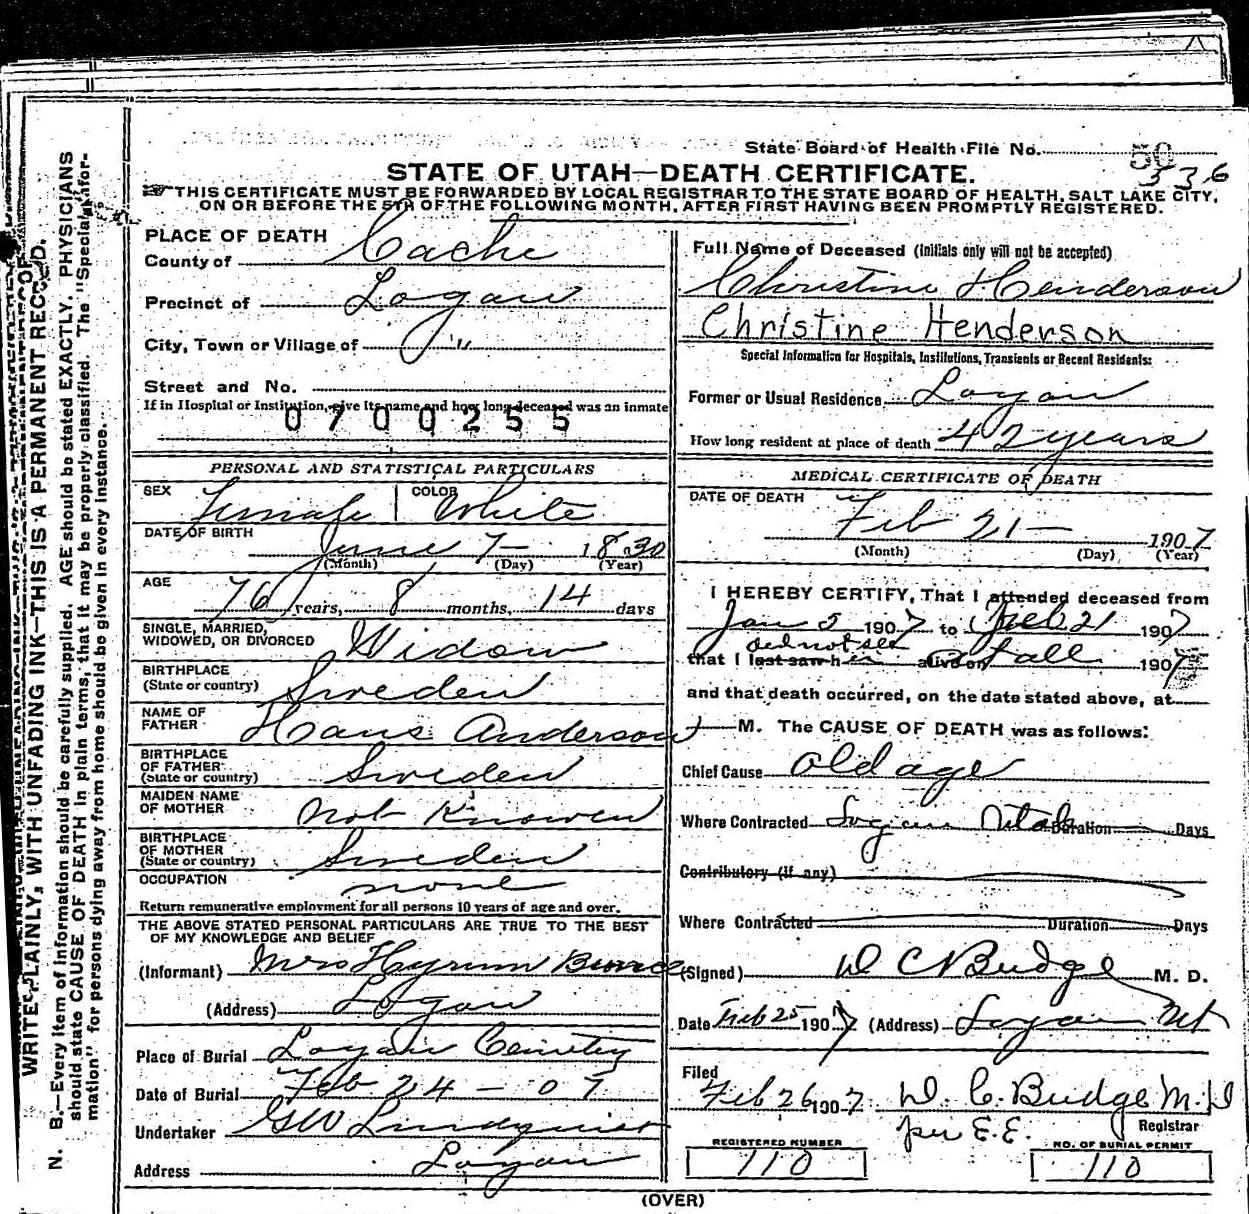 State Board of Health File No. 50
336
STATE OF UTAH—DEATH CERTIFICATE.
THIS CERTIFICATE MUST BE FORWARDED BY LOCAL REGISTRAR TO THE STATE BOARD OF HEALTH, SALT LAKE CITY,
ON OR BEFORE THE 5TH OF THE FOLLOWING MONTH, AFTER FIRST HAVING BEEN PROMPTLY REGISTERED.
WRITE PLAINLY, WITH UNFADING INK—THIS IS A PERMANENT RECORD.
N. B.—Every item of information should be carefully supplied. AGE should be stated EXACTLY. PHYSICIANS
should state CAUSE OF DEATH in plain terms, that it may be properly classified. The "Special Infor-
mation" for persons dying away from home should be given in every instance.
PLACE OF DEATH
County of Cache
Precinct of Logan
City, Town or Village of "
Street and No.
If in Hospital or Institution, give its name and how long deceased was an inmate
0700255
PERSONAL AND STATISTICAL PARTICULARS
SEX Female COLOR White
DATE OF BIRTH June 7 – 1830
(Month) (Day) (Year)
AGE 76 years, 8 months, 14 days
SINGLE, MARRIED,
WIDOWED, OR DIVORCED Widow
BIRTHPLACE
(State or country) Sweden
NAME OF
FATHER Hans Anderson
BIRTHPLACE
OF FATHER
(State or country) Sweden
MAIDEN NAME
OF MOTHER Not Knowen
BIRTHPLACE
OF MOTHER
(State or country) Sweden
OCCUPATION none
Return remunerative employment for all persons 10 years of age and over.
THE ABOVE STATED PERSONAL PARTICULARS ARE TRUE TO THE BEST
OF MY KNOWLEDGE AND BELIEF
(Informant) Mrs Hyrum
(Address) Logan
Place of Burial Logan Cemetry
Date of Burial Feb 24 – 07
Undertaker GW Lindquist
Address Logan
Full Name of Deceased (Initials only will not be accepted)
Christine Henderson
Christine Henderson
Special Information for Hospitals, Institutions, Transients or Recent Residents:
Former or Usual Residence Logan
How long resident at place of death 42 years
MEDICAL CERTIFICATE OF DEATH
DATE OF DEATH
Feb 21 – 1907
(Month) (Day) (Year)
I HEREBY CERTIFY, That I attended deceased from
Jan 5 1907 to Feb 21 1907
did not see
that I last saw her alive on at all 1907
and that death occurred, on the date stated above, at
M. The CAUSE OF DEATH was as follows:
Chief Cause old age
Where Contracted Logan Utah Duration Days
Contributory (if any)
Where Contracted Duration Days
(Signed) D C Budge M. D.
Date Feb 25 1907 (Address) Logan Ut
Filed
Feb 26 1907 D. C. Budge M.D
per E.E. Registrar
REGISTERED NUMBER
110
NO. OF BURIAL PERMIT
110
(OVER)